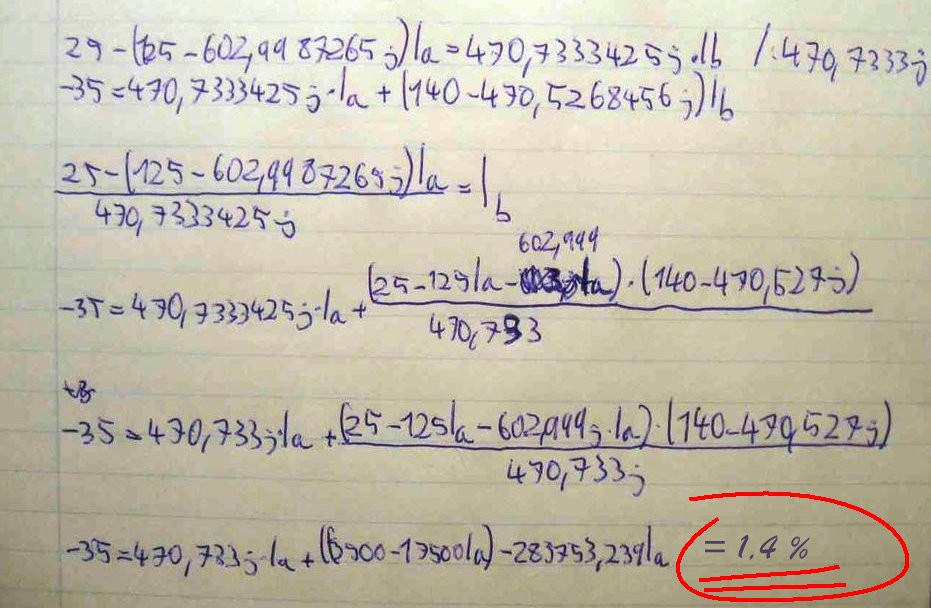 25-(125-602,9987265j)Ia=470,7333425j·Ib /:470,7333j
-35=470,7333425j·Ia+(140-470,5268456j)Ib
25-(125-602,9987265j)Ia
470,7333425j
=Ib
602,999
-35=470,7333425j·Ia+
(25-125Ia- )·(140-470,527j)
470,733
-35=470,733j·Ia+
(25-125Ia-602,999j·Ia)·(140-470,527j)
470,733j
-35=470,733j·Ia+(3500-17500Ia)-283753,239Ia = 1.4 %